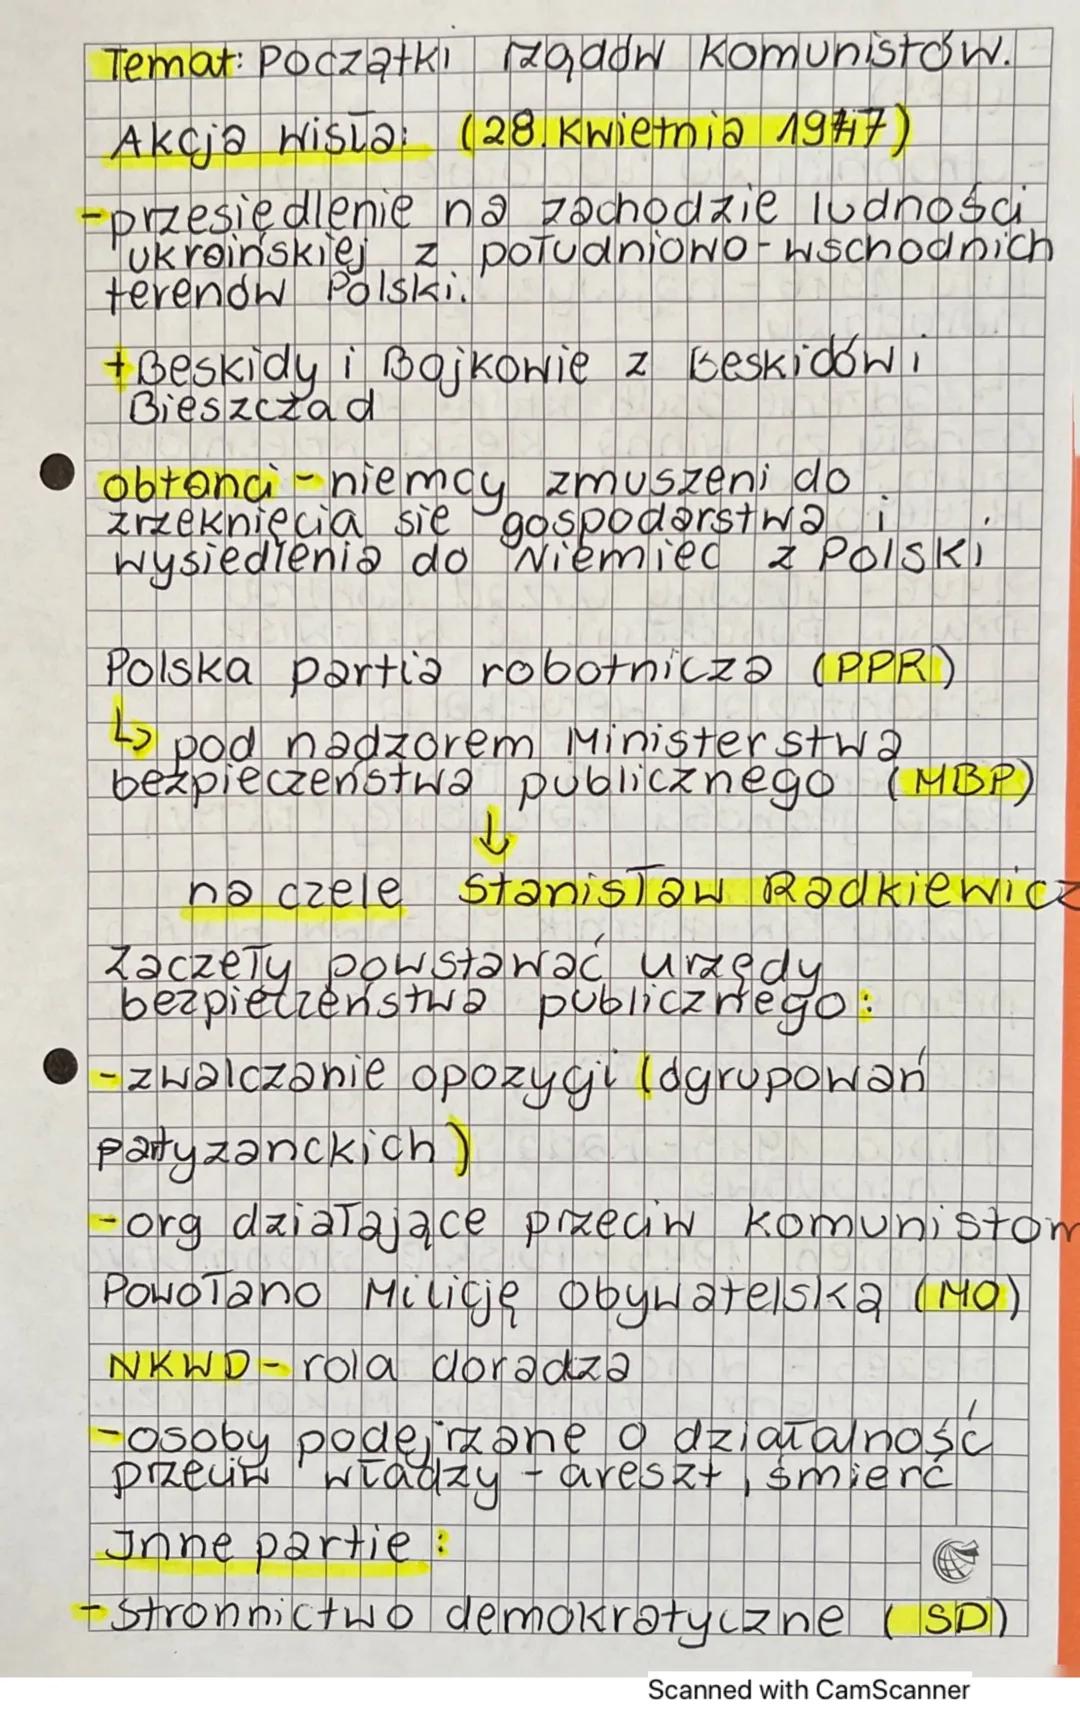 Temat: Początki rządów komunistów.
Akcja Wisła: (28.kwietnia 1947)
-przesiędlenie na zachodzie ludności
ukraińskiej z południowo-wschodnich
terenów Polski.
+Beskidy i Bojkowie z Beskidów i
Bieszczad
obtanci-niemcy zmuszeni do
zrzeknięcia się gospodarstwa i
wysiedlenia do Niemiec z Polski
Polska partia robotnicza (PPR)
↳ pod nadzorem Ministerstwa
bezpieczeństwa publicznego (MBP)
↓
na czele Stanisław Radkiewicz
Zaczeły powstawać urzędy
bezpieczeństwa publicznego:
-zwalczanie opozycji (ugrupowań
partyzanckich)
-org działające przeciw komunistom
Powołano Milicję Obywatelską (MO)
NKWD-rola doradza
-osoby podejrzane o działalność
przeciw władzy - areszt, śmierć
Inne partie:
-Stronnictwo demokratyczne (SD)
Scanned with CamScanner